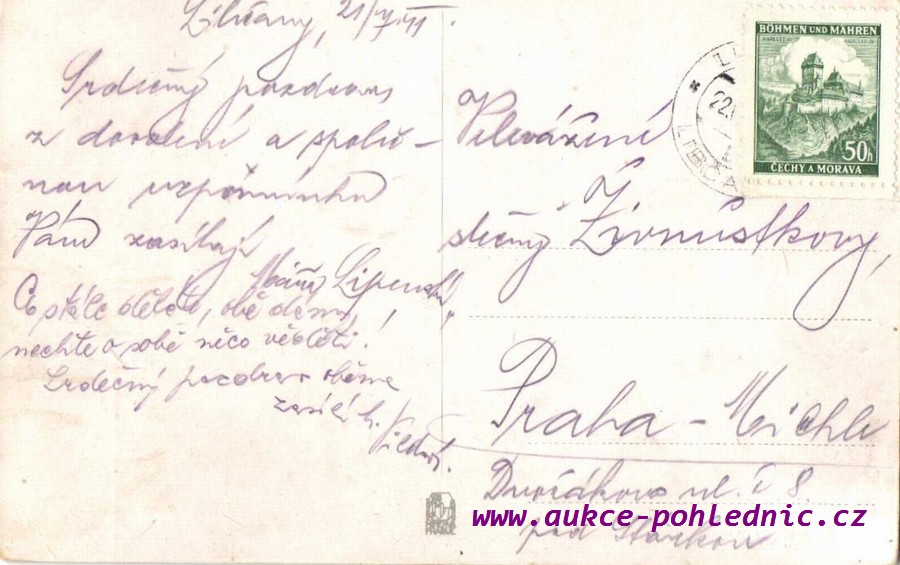 Libčany, 21/
Srdečný pozdrav
z dovolení a společ-
nou vzpomínku
Vám zasílají
Lipenská,
Co stále děláte, obě dámy,
nechte o sobě něco věděti!
Srdečný pozdrav oběma
zasílá
BÖHMEN UND MÄHREN
50h
ČECHY A MORAVA
22
LIBČA
Velevážení
slečny Živnůstkovy,
Praha - Michle
Dvořákova ul. č 8.
pod Starkou
www.aukce-pohlednic.cz